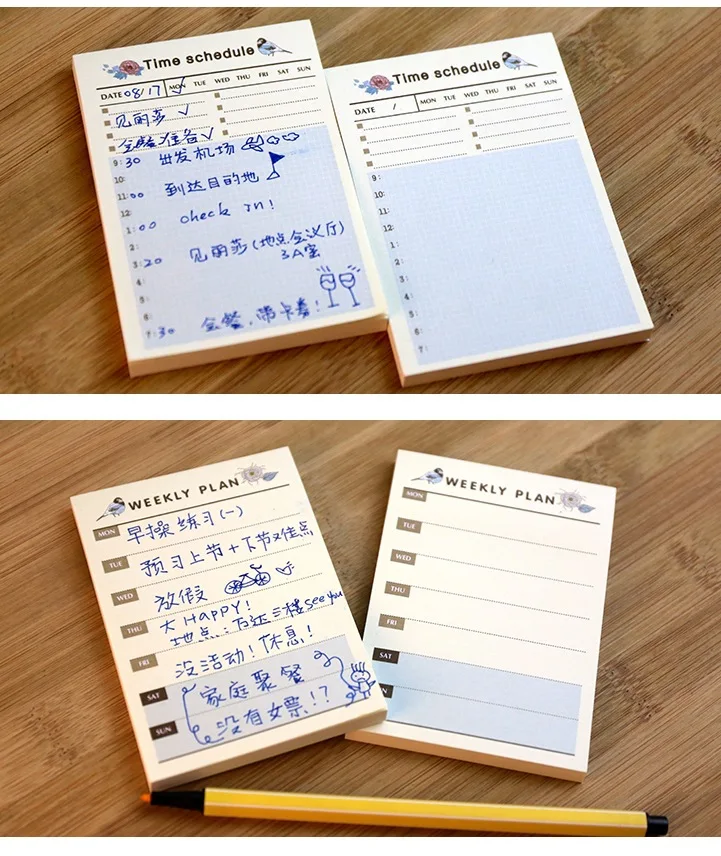 Time schedule
DATE 08/17 MON TUE WED THU FRI SAT SUN
见丽莎 ✓
会餐准备 ✓
9:30 出发机场
10:
11:00 到达目的地
12:
1:00 check in!
2:
3:20 见丽莎(地点会议厅)
3A室
4:
5:
6:
7:30 会餐,带卡券!
Time schedule
DATE / MON TUE WED THU FRI SAT SUN
9:
10:
11:
12:
1:
2:
3:
4:
5:
6:
7:
WEEKLY PLAN
MON 早操练习(一)
TUE 预习上节+下节难点
WED 放假
THU 大HAPPY!
地点:万达三楼see you
FRI 没活动!休息!
SAT 家庭聚餐
SUN 没有女票!?
WEEKLY PLAN
MON
TUE
WED
THU
FRI
SAT